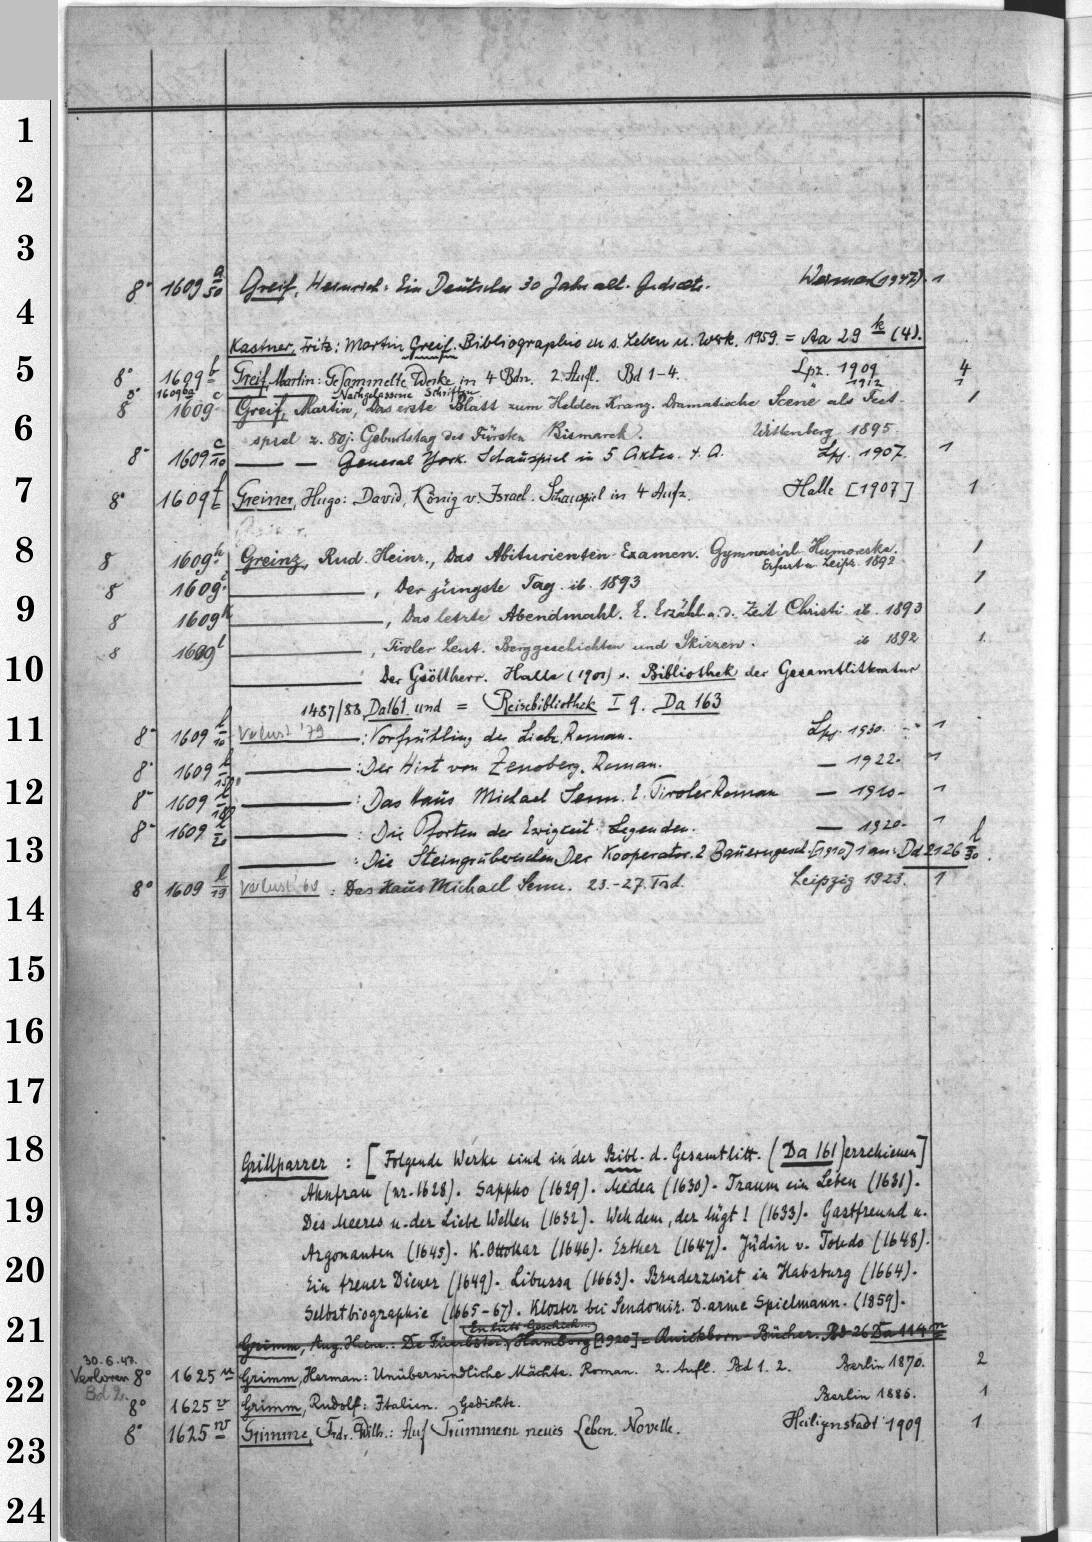 1
2
3
8° 1609 a/50 Greif, Heinrich: Ein Deutscher 30 Jahre alt. Gedichte. Weimar (1947). 1
4
Kastner, Fritz: Martin Greif. Bibliographie zu s. Leben u. Werk. 1959. = Aa 29 k (4).
5
8° 1609 b Greif, Martin: Gesammelte Werke in 4 Bdn. 2. Aufl. Bd 1-4. Lpz. 1909 4
8° 1609 ba — — Nachgelassene Schriften " 1912 1
8 1609 c Greif, Martin, Das erste Blatt zum Helden Kranz. Dramatische Scene als Fest-
6
spiel z. 80j. Geburtstag des Fürsten Bismarck. Wittenberg 1895. 1
8° 1609 c/10 — — General York. Schauspiel in 5 Akten. 4. A. Lpz. 1907. 1
7
8° 1609 f Greiner, Hugo: David, König v. Israel. Schauspiel in 4 Aufz. Halle [1907] 1
8
8 1609 h Greinz, Rud. Heinr., Das Abiturienten-Examen. Gymnasial-Humoreske. Erfurt u. Leipz. 1892 1
8 1609 i —, Der jüngste Tag. ib. 1893 1
9
8 1609 k —, Das letzte Abendmahl. E. Erzähl. a. d. Zeit Christi ib. 1893 1
8 1609 l —, Tiroler Leut. Berggeschichten und Skizzen. ib 1892 1.
10
— Der Gsöllherr. Halle (1901) s. Bibliothek der Gesamtlitteratur
1487/88 Da161 und = Reisebibliothek I 9. Da 163
11
8° 1609 l/10 Verlust '79 : Vorfrühling der Liebe. Roman. Lpz. 1930. 1
8° 1609 l — : Der Hirt von Zenoberg. Roman. — 1922. 1
12
8° 1609 l/18 — : Das Haus Michael Senn. E. Tiroler Roman — 1920. 1
8° 1609 l/20 — : Die Pforten der Ewigkeit. Legenden. — 1920. 1
13
— : Die Steingruberischen. Der Kooperator. 2 Bauerngesch. [1910] 1 an: Dd 2126 l/30.
8° 1609 l/19 Verlust : Das Haus Michael Senn. 23.-27. Tsd. Leipzig 1923. 1
14
15
16
17
18
Grillparzer : [Folgende Werke sind in der Bibl. d. Gesamtlitt. (Da 161) erschienen]
Ahnfrau (nr. 1628). Sappho (1629). Medea (1630). Traum ein Leben (1631).
19
Des Meeres u. der Liebe Wellen (1632). Weh dem, der lügt! (1633). Gastfreund u.
Argonauten (1645). K. Ottokar (1646). Esther (1647). Jüdin v. Toledo (1648).
20
Ein treuer Diener (1649). Libussa (1663). Bruderzwist in Habsburg (1664).
Selbstbiographie (1665-67). Kloster bei Sendomir. D. arme Spielmann. (1859).
21
Grimm, Aug. Hinr.: Hamburg [1920] = Quickborn-Bücher. Bd 26 Da 114
30.6.47. Verloren Bd 2.
8° 1625 m Grimm, Herman: Unüberwindliche Mächte. Roman. 2. Aufl. Bd 1. 2. Berlin 1870. 2
22
8° 1625 v Grimm, Rudolf: Italien. Gedichte. Berlin 1886. 1
8° 1625 w Grimme, Frdr. Wilh.: Auf Trümmern neues Leben. Novelle. Heiligenstadt 1909 1
23
24